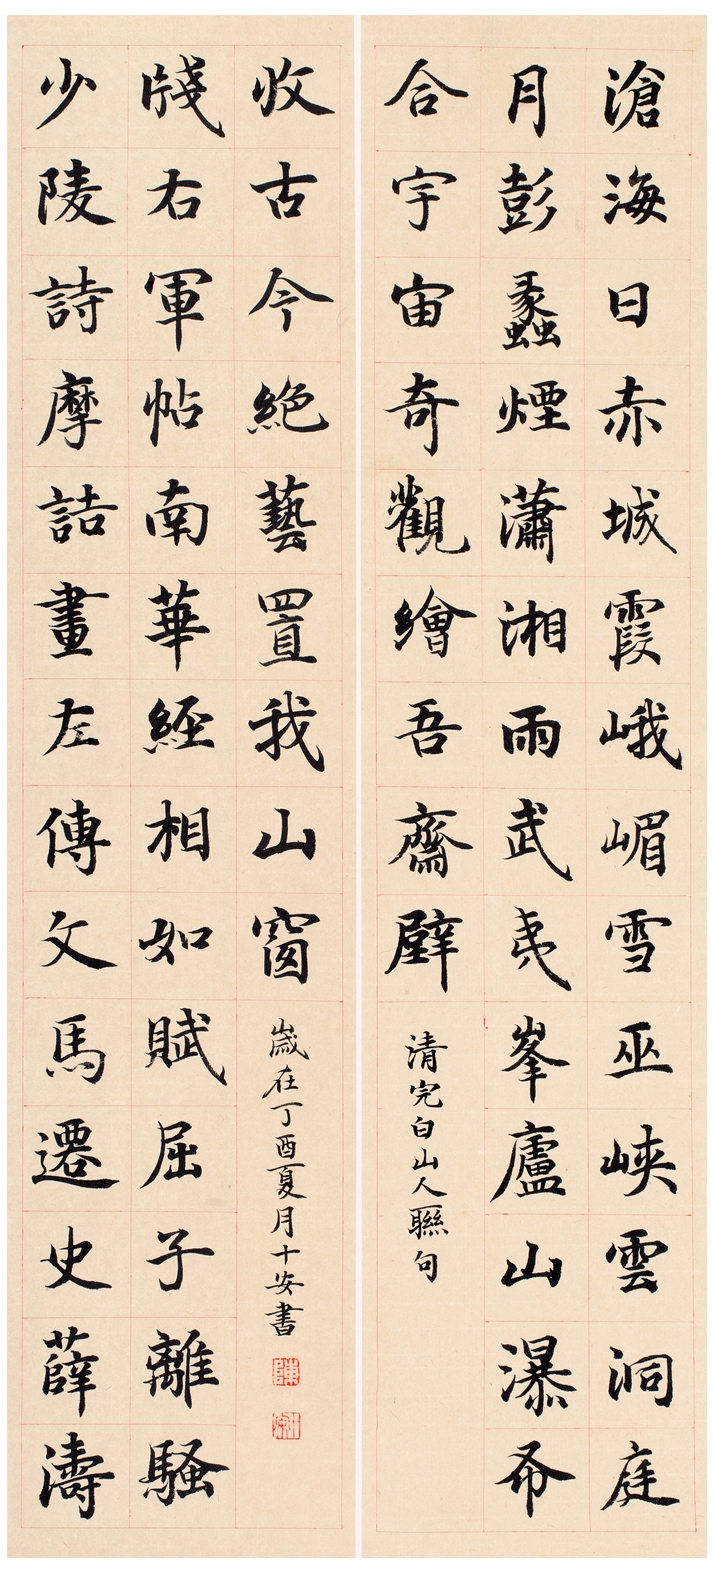 滄海日赤城霞峨嵋雪巫峽雲洞庭
月彭蠡煙瀟湘雨武夷峯廬山瀑布
合宇宙奇觀繪吾齋壁
清完白山人聯句
少陵詩摩詰畫左傳文馬遷史薛濤
牋右軍帖南華經相如賦屈子離騷
收古今絕藝置我山窗
歲在丁酉夏月十安書